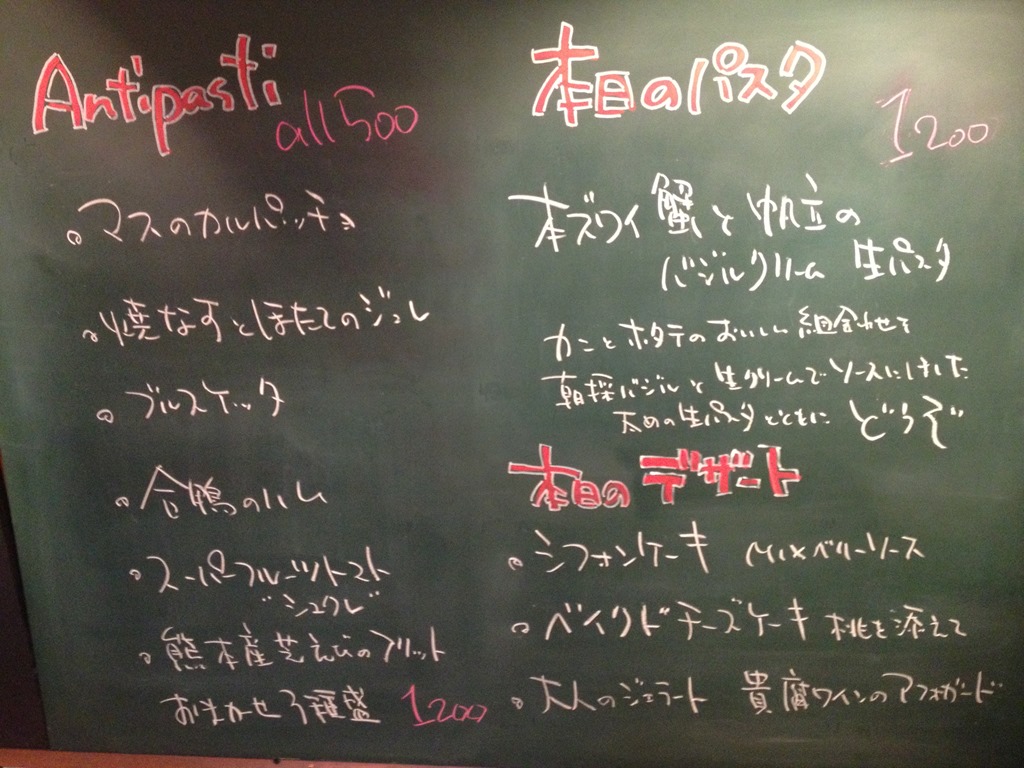 Antipasti
all 500
。マスのカルパッチョ
。焼なすとほたてのジュレ
。ブルスケッタ
。合鴨のハム
。スーパーフルーツトマト
"シュクレ"
。熊本産芝えびのフリット
おまかせ3種盛 1200
本日のパスタ
1200
本ズワイ蟹と帆立の
バジルクリーム 生パスタ
カニとホタテのおいしい組合わせを
朝採バジルと生クリームでソースにしました
太めの生パスタとともに どうぞ
本日のデザート
。シフォンケーキ Mixベリーソース
。ベイクドチーズケーキ 桃を添えて
。大人のジェラート 貴腐ワインのアフォガード